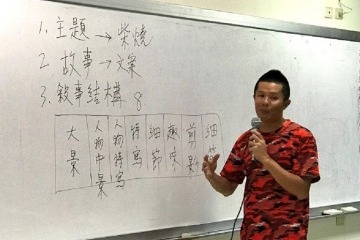 1. 主題 → 柴燒
2. 故事 → 文案
3. 敘事結構 8
大景
人物中景
人物特寫
特寫
細節
趣味
前景
細節